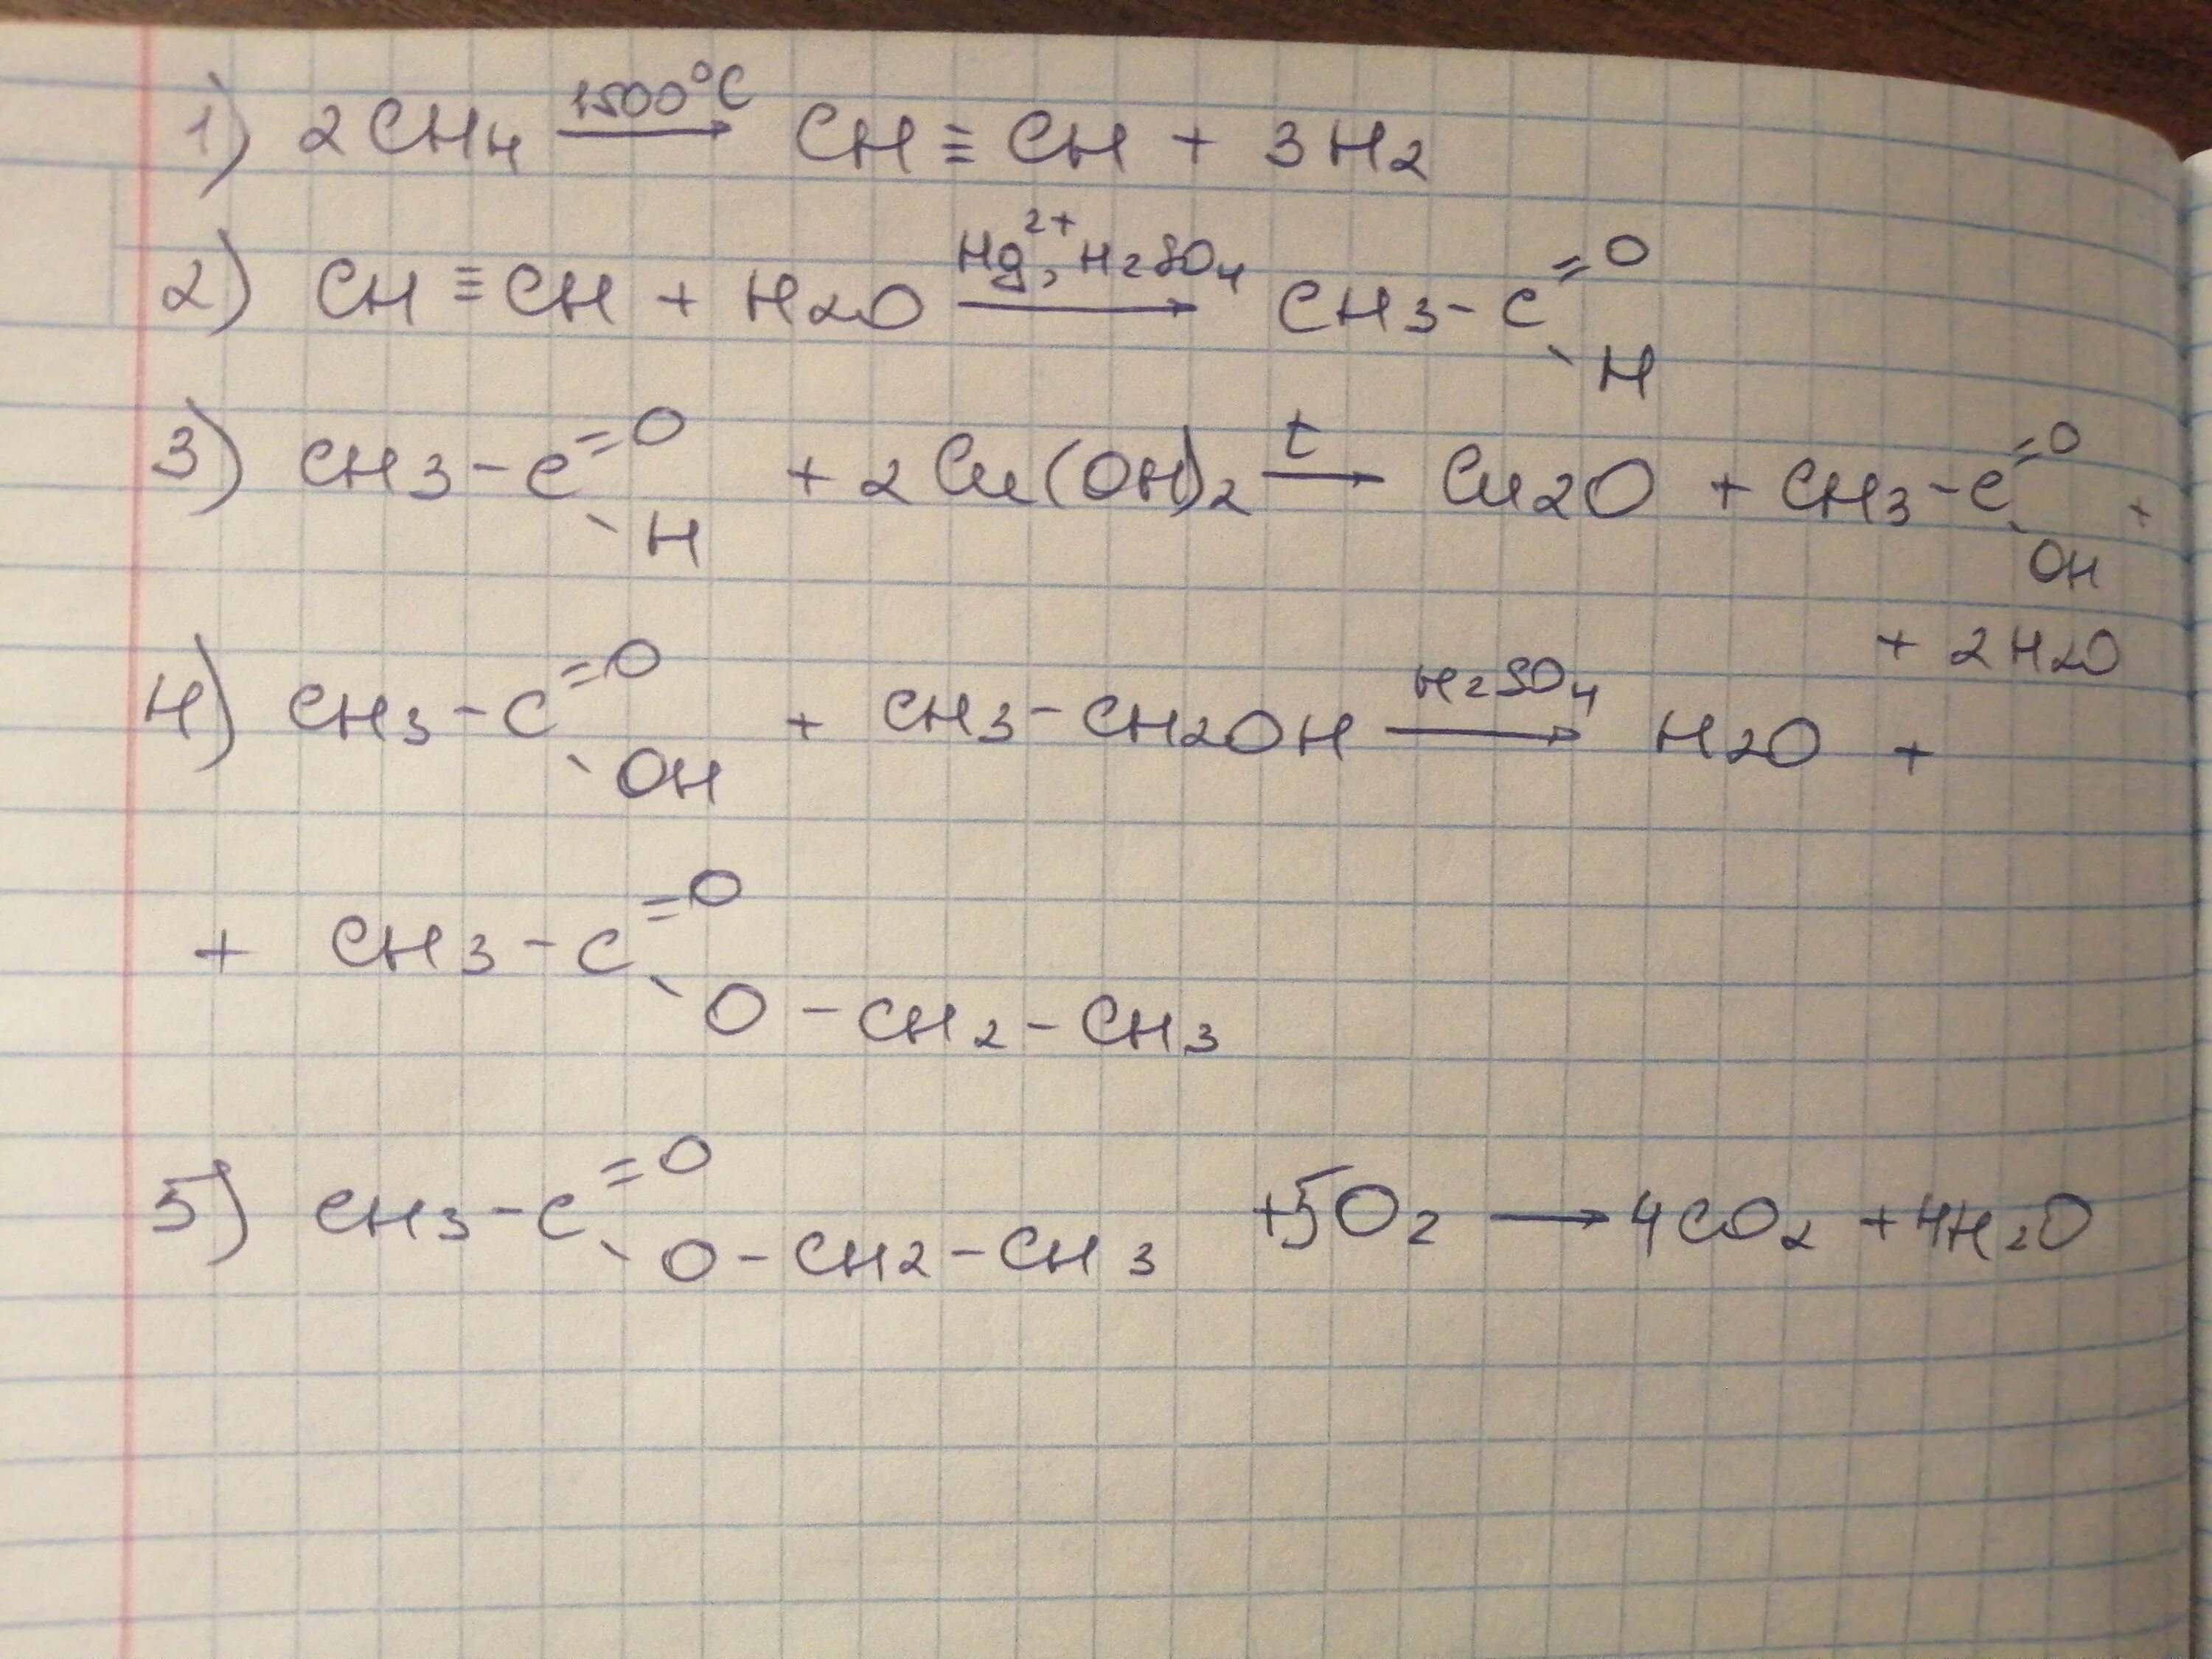 1) 2CH4 1500°C → CH ≡ CH + 3H2
2) CH ≡ CH + H2O Hg2+, H2SO4 → CH3 - C =O - H
3) CH3 - C =O - H + 2Cu(OH)2 t → Cu2O + CH3 - C =O - OH +
+ 2H2O
4) CH3 - C =O - OH + CH3 - CH2OH H2SO4 → H2O +
+ CH3 - C =O - O - CH2 - CH3
5) CH3 - C =O - O - CH2 - CH3 + 5O2 → 4CO2 + 4H2O